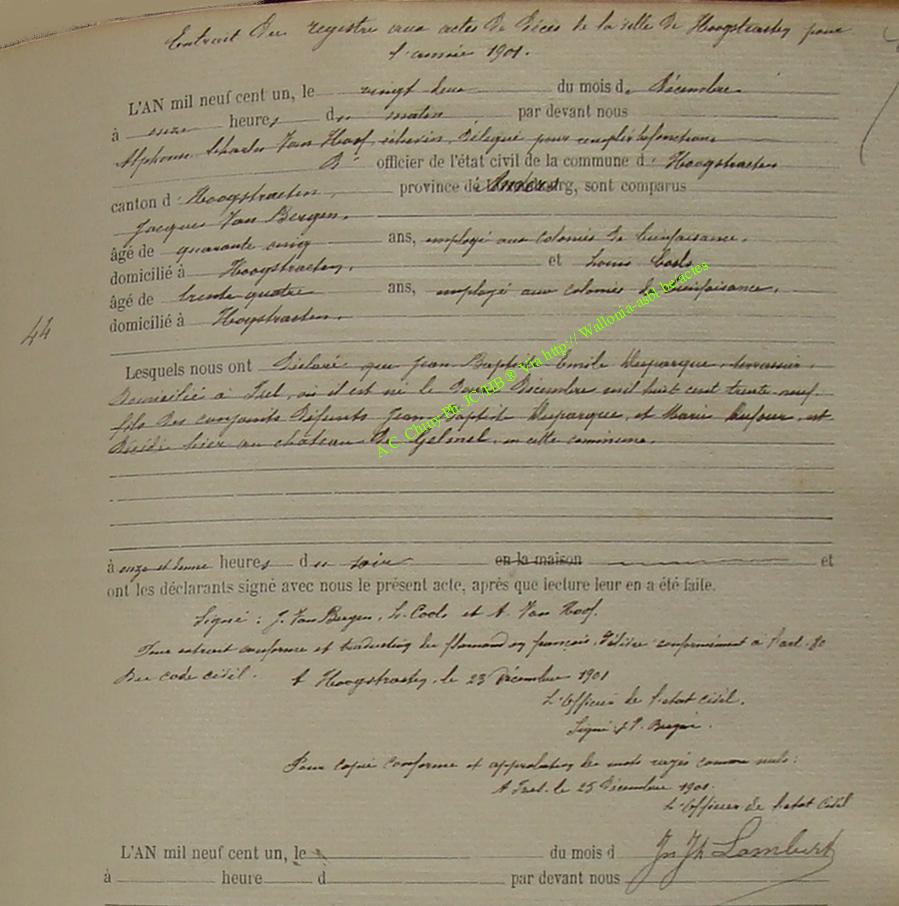 Extrait du registre aux actes de décès de la ville de Hoogstraeten pour
l'année 1901.
L'AN mil neuf cent un, le vingt deux du mois d e Décembre
à onze heures du matin par devant nous
Alphonse Charles Van Hoof, échevin, délégué pour remplir les fonctions
d' officier de l'état civil de la commune d e Hoogstraeten
canton d e Hoogstraeten, province d'Anvers, sont comparus
Jacques Van Bergen,
âgé de quarante cinq ans, employé aux colonies de bienfaisance,
domicilié à Hoogstraeten, et Louis Cools
âgé de trente quatre ans, employé aux colonies de bienfaisance,
domicilié à Hoogstraeten.
44
Lesquels nous ont déclaré que Jean Baptiste Emile
Domicilié à Izel, où il est né le Décembre mil huit cent trente neuf
fils des conjoints défunts Jean Baptiste et Marie Dufour, est
décédé hier au château de Gelmel, en cette commune,
à onze et demie heures du soir en la maison et
ont les déclarants signé avec nous le présent acte, après que lecture leur en a été faite.
Signé : J. Van Bergen, L. Cools et A. Van Hoof.
Pour extrait conforme et traduction du flamand en français, délivré conformément à l'art. 80
Du code civil. A Hoogstraeten, le 23 Décembre 1901
L'Officier de l'état civil.
Signé
Pour copie conforme et approbation des mots rayés comme nuls :
A Izel, le 25 Décembre 1901.
L'Officier de l'état civil
Jn Jh Lambert
L'AN mil neuf cent un, le du mois d
à heure d par devant nous
A.C. Chiny Ph. JC HB ® Via http:// Wallonia-asbl.be/actes